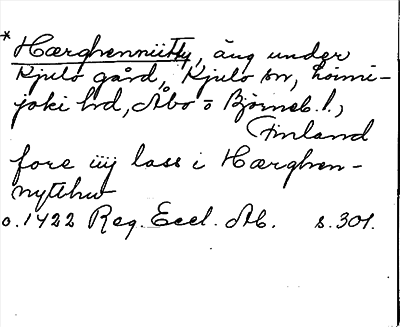 * Hærghenniitty, äng under
Kjulo gård, Kjulo sn, Loimi-
joki hd, Åbo o Björneb. l.,
Finland
fore iiij lass i Hærghen-
nytthu
o. 1422 Reg. Eccl. Ab. s. 301.